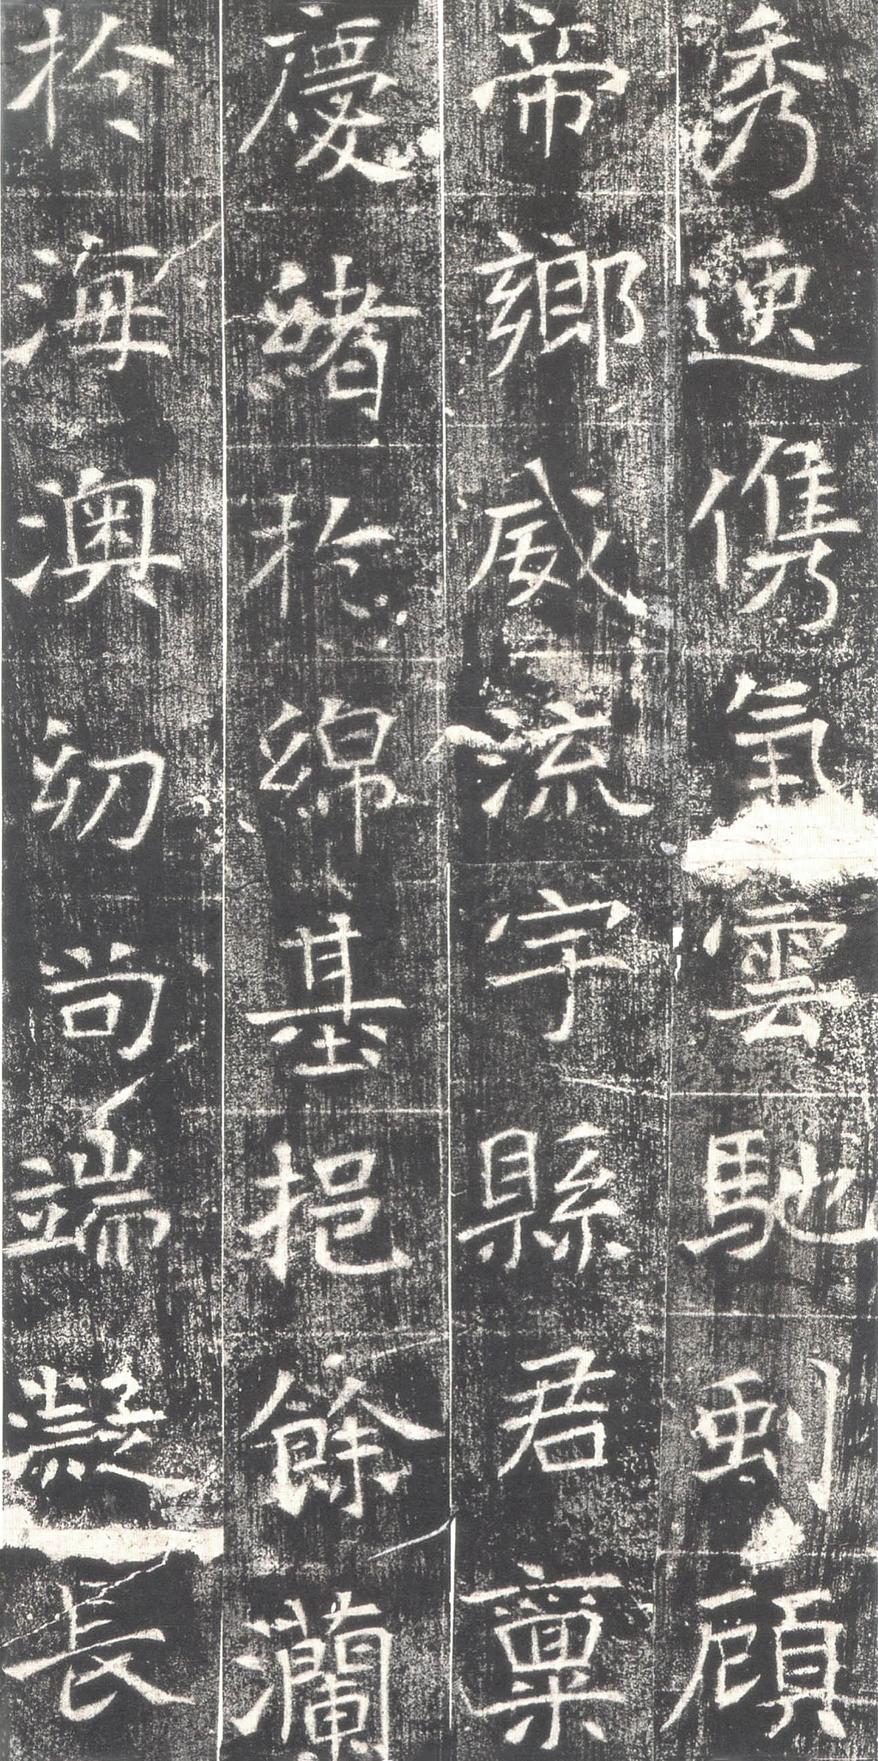 秀迺儁氣雲馳劉顧
帝鄉威流宇縣君稟
慶緒於綿基挹餘瀾
於海澳幼尚端凝長